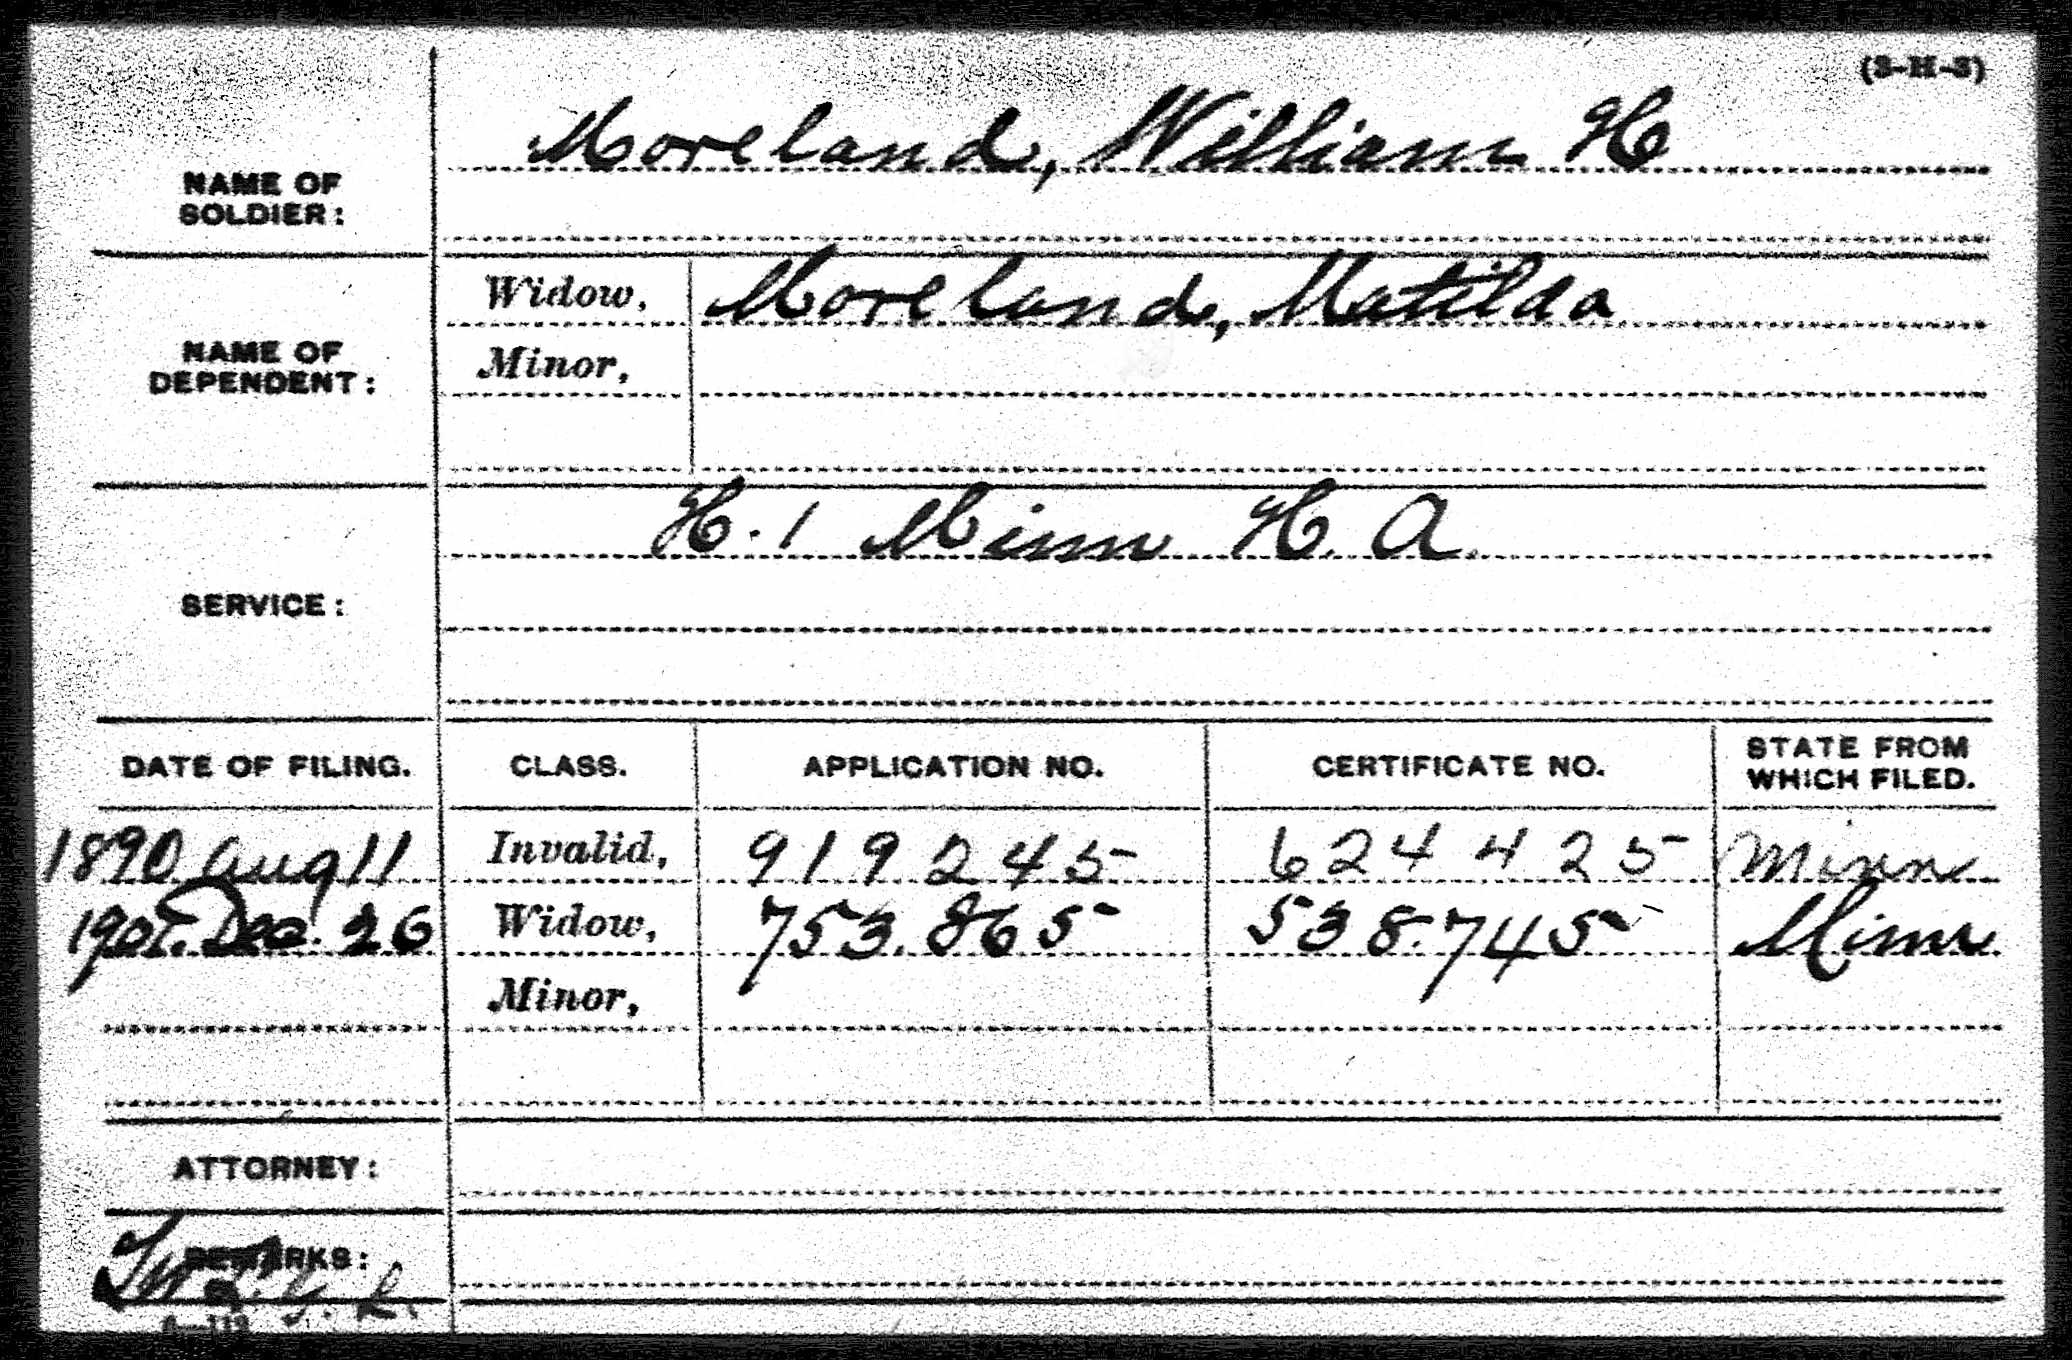 (3-H-3)
Moreland, William H
NAME OF
SOLDIER:
Widow, Moreland, Matilda
NAME OF
DEPENDENT:
Minor,
H. 1 Minn H. A.
SERVICE:
DATE OF FILING. CLASS. APPLICATION NO. CERTIFICATE NO. STATE FROM WHICH FILED.
1890 Aug 11 Invalid, 919245 624425 Minn
1901. Dec. 26 Widow, 753.865 538.745 Minn.
Minor,
ATTORNEY:
REMARKS: